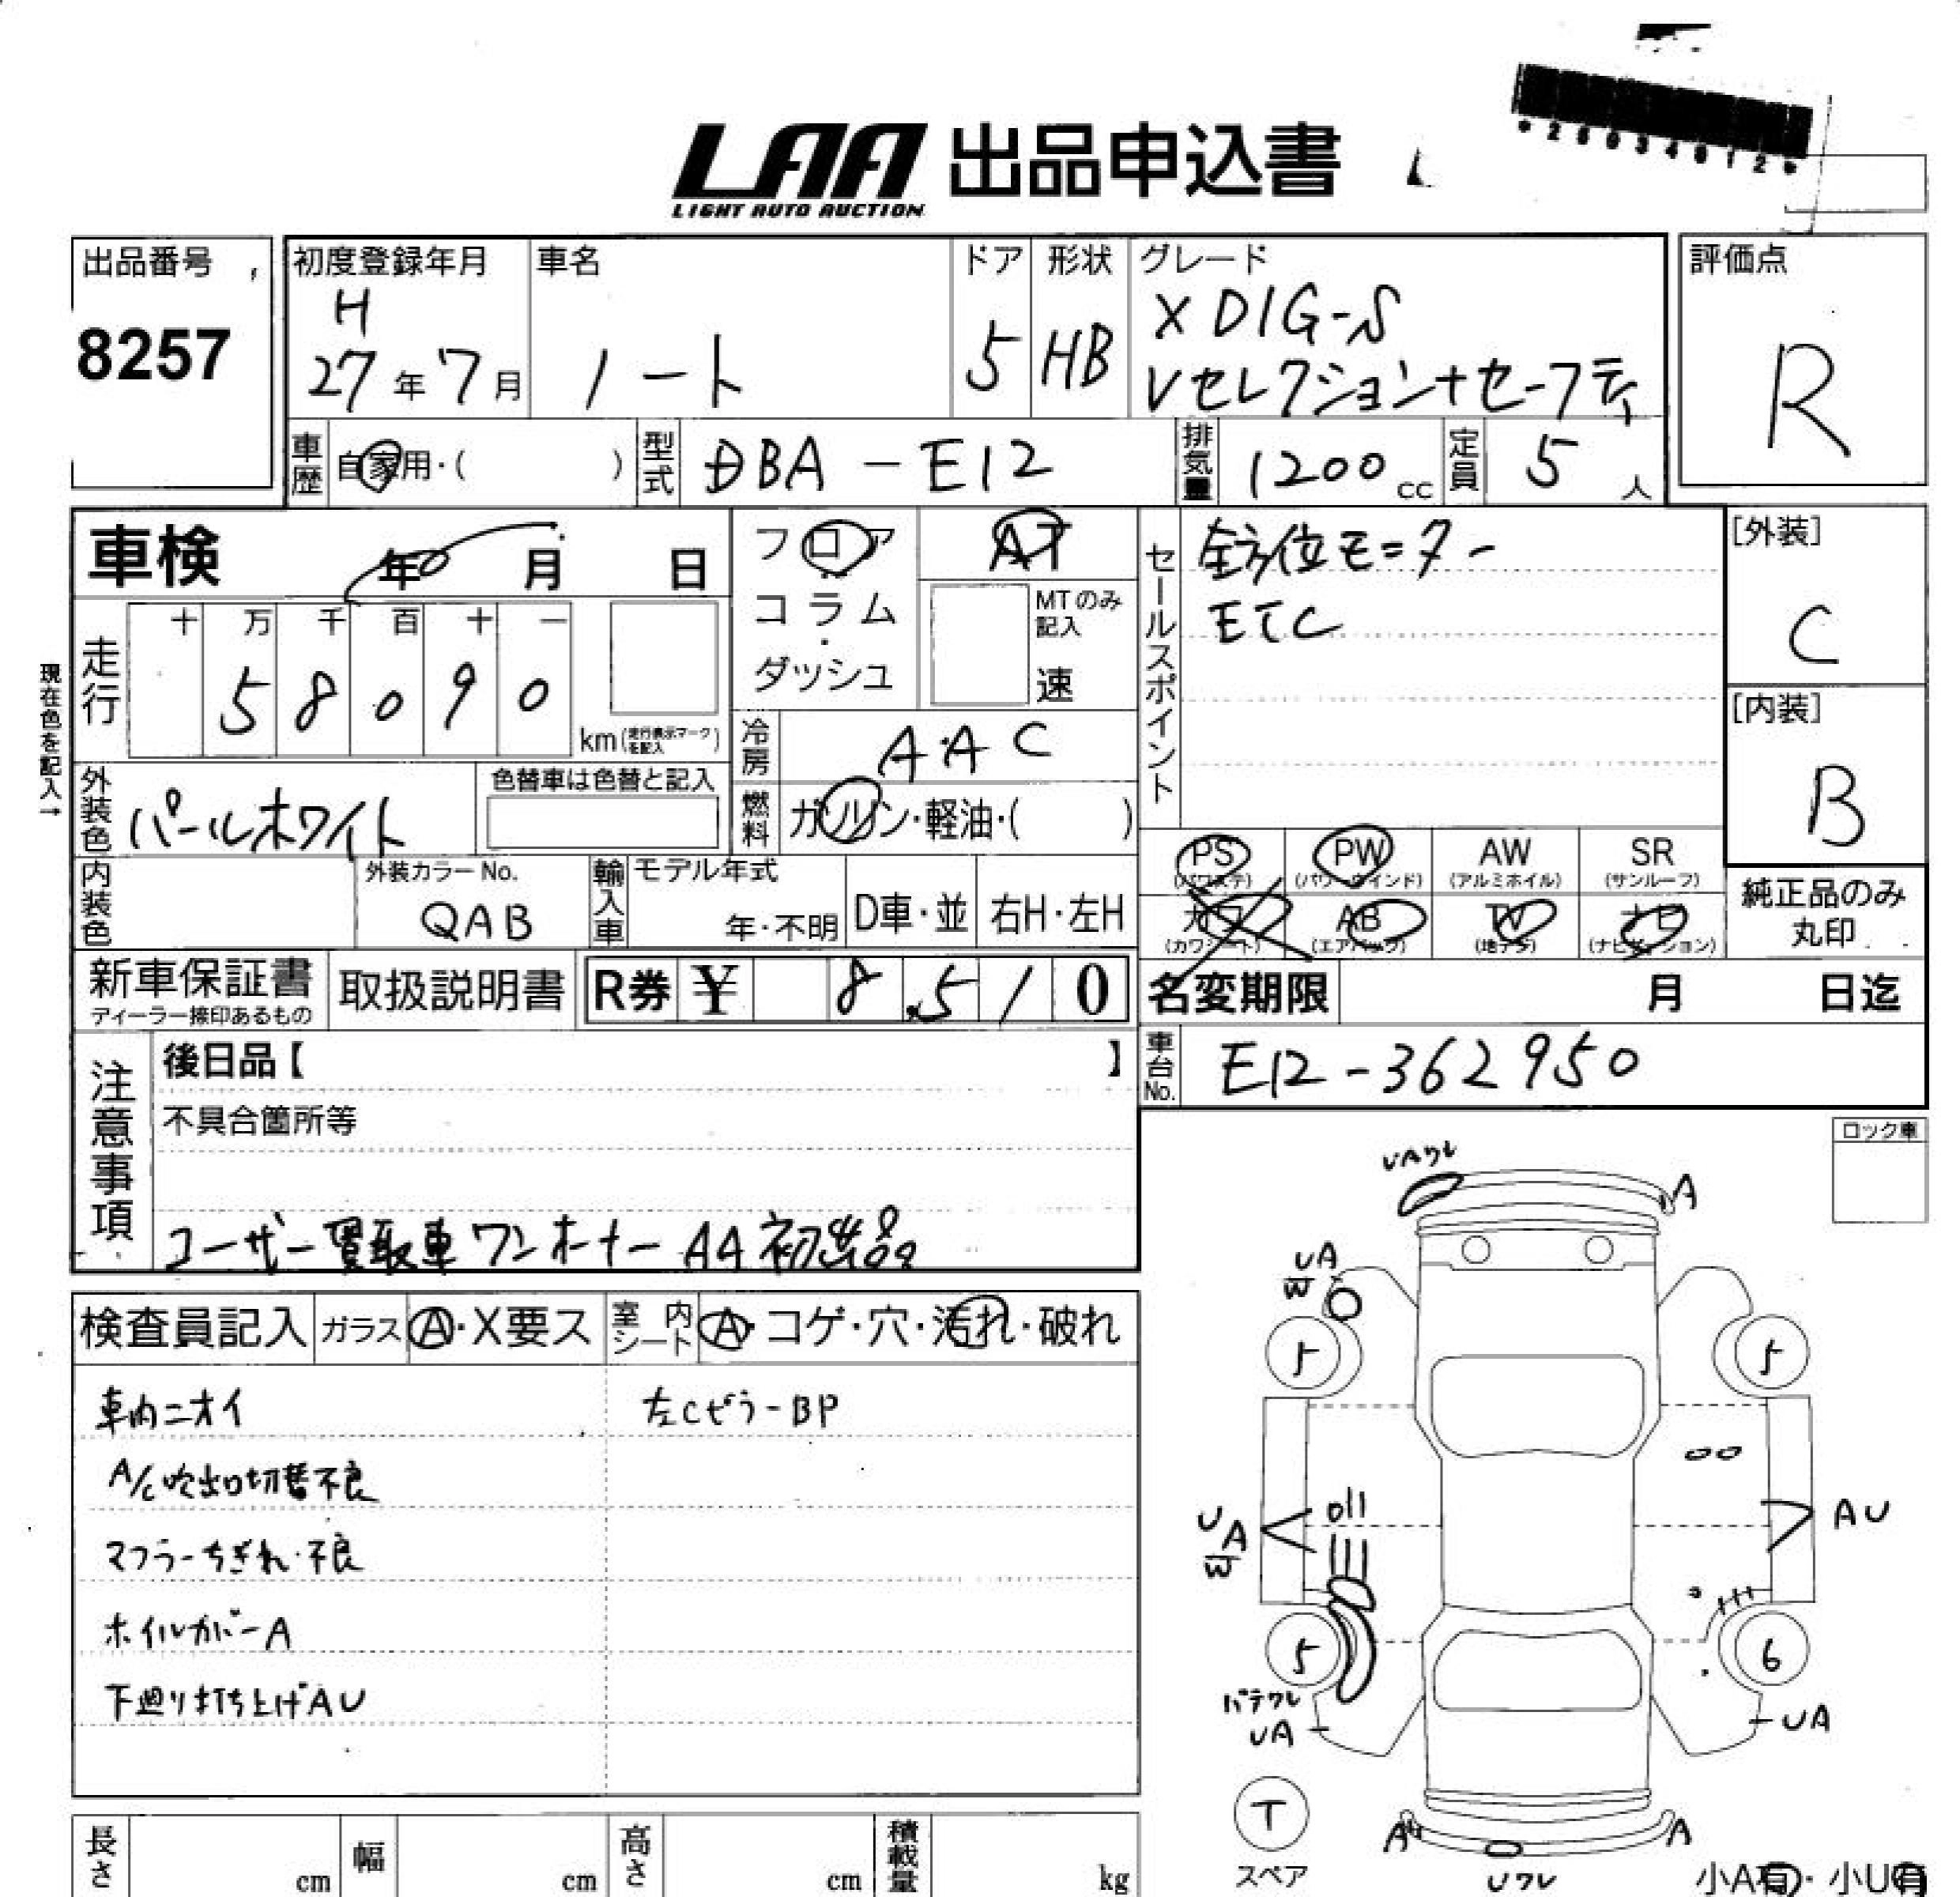 *28034012*
LAA 出品申込書
LIGHT AUTO AUCTION
出品番号
8257
初度登録年月
H
27年7月
車名
ノート
ドア
5
形状
HB
グレード
X DIG-S
Vセレクション+セーフティ
評価点
R
車歴 自家用・( )
型式 DBA-E12
排気量 1200cc
定員 5人
車検 年 月 日
フロア
コラム
ダッシュ
AT
MTのみ記入
速
セールスポイント
全方位モニター
ETC
[外装]
C
[内装]
B
現在色を記入→
走行 十 万 千 百 十 一
5 8 0 9 0
km(走行表示マークを記入)
冷房 AAC
燃料 ガソリン・軽油・( )
外装色 パールホワイト
色替車は色替と記入
内装色
外装カラーNo.
QAB
輸入車
モデル年式
年・不明
D車・並
右H・左H
PS
(パワステ)
PW
(パワーウインド)
AW
(アルミホイル)
SR
(サンルーフ)
カワ
(カワシート)
AB
(エアバッグ)
TV
(地デジ)
ナビ
(ナビゲーション)
純正品のみ
丸印
新車保証書
ディーラー捺印あるもの
取扱説明書
R券 ¥ 8,510
名変期限 月 日迄
車台No. E12-362950
注意事項
後日品【 】
不具合箇所等
ユーザー買取車ワンオーナー AA初出品
ロック車
検査員記入
ガラス A・X要ス
室内シート A・コゲ・穴・汚れ・破れ
車内ニオイ
左Cピラー BP
A/C吹出口切替不良
マフラーちぎれ・不良
ホイルカバーA
下廻り打ち上げAU
UAワレ
A
UA
W
5
5
UA
W
AU
5
6
パテワレ
UA
UA
T
スペア
A
A
Uワレ
小A有・小U有
長さ cm
幅 cm
高さ cm
積載量 kg